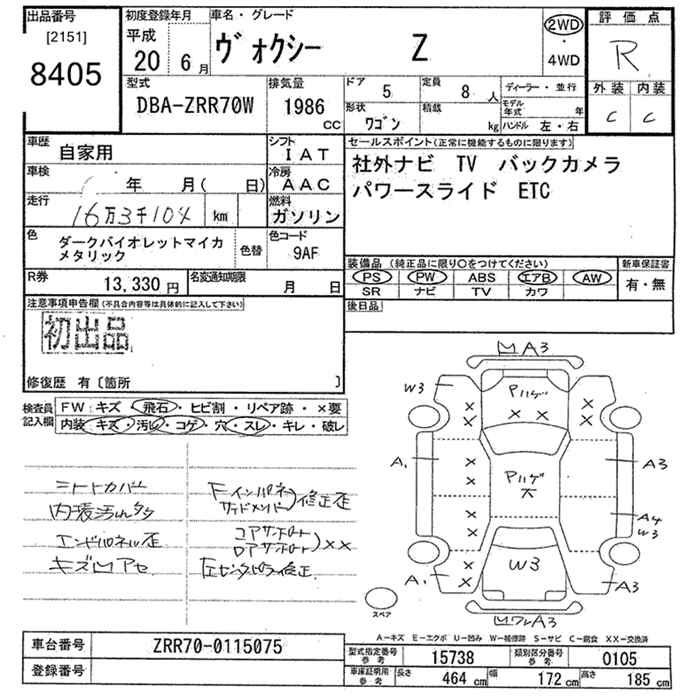 出品番号
[2151]
8405
初度登録年月
平成
20年 6月
車名・グレード
ヴォクシー Z
2WD
・
4WD
評価点
R
外装 内装
C C
型式
DBA-ZRR70W
排気量
1986 CC
ドア 5
定員 8人
形状 ワゴン
積載 kg
ディーラー・並行
モデル年式 年
ハンドル 左・右
車歴
自家用
シフト
IAT
車検
年 月( 日)
冷房
AAC
走行
16万3千104 km
燃料
ガソリン
色
ダークバイオレットマイカメタリック
色替
色コード
9AF
R券 13,330円
名変通知期限 月 日
セールスポイント(正常に機能するものに限ります)
社外ナビ TV バックカメラ
パワースライド ETC
装備品(純正品に限り○をつけてください)
PS PW ABS エアB AW
SR ナビ TV カワ
新車保証書
有・無
後日品
注意事項申告欄(不具合内容等は具体的に記入して下さい)
初出品
修復歴 有〔箇所 〕
検査員記入欄
FW:キズ・飛石・ヒビ割・リペア跡・×要
内装:キズ・汚れ・コゲ・穴・スレ・キレ・破レ
シートカバー
内張汚れ多
エンドパネル歪
キズ凹アセ
Fインパネ
サイドメンバー)修正歪
コアサポート
ロアサポート)××
F左センタピラ修正
凹A3
W3
Pハゲ
× × × ×
A. A3
Pハゲ
大
A4
W3
W3
A. A3
凹ワレA3
スペア
A-キズ E-エクボ U-凹み W-補修跡 S-サビ C-腐食 XX-交換済
車台番号 ZRR70-0115075
登録番号
型式指定番号参考 15738
類別区分番号参考 0105
車庫証明用参考 長さ 464cm 幅 172cm 高さ 185cm